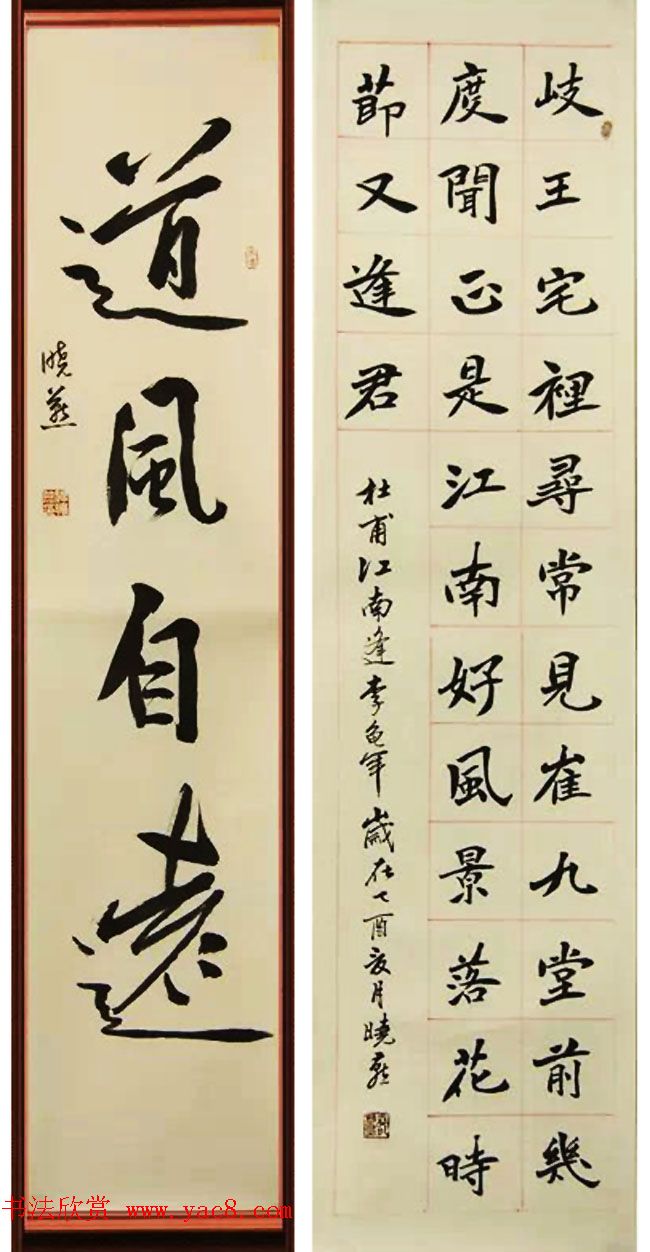 道風自遠
晓燕
岐王宅裡尋常見崔九堂前幾
度聞正是江南好風景落花時
莭又逢君
杜甫江南逢李龟年歲在酉夏月曉燕
书法欣赏 www.yac8.com